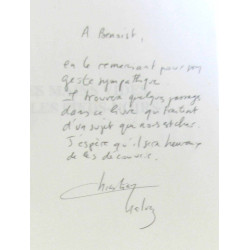 A Benoist,
en le remerciant pour son
geste sympathique
Il trouvera quelques passages
dans ce livre qui traitent
d'un sujet que nous est cher.
J'espère qu'il sera heureux
de les découvrir.
Christian